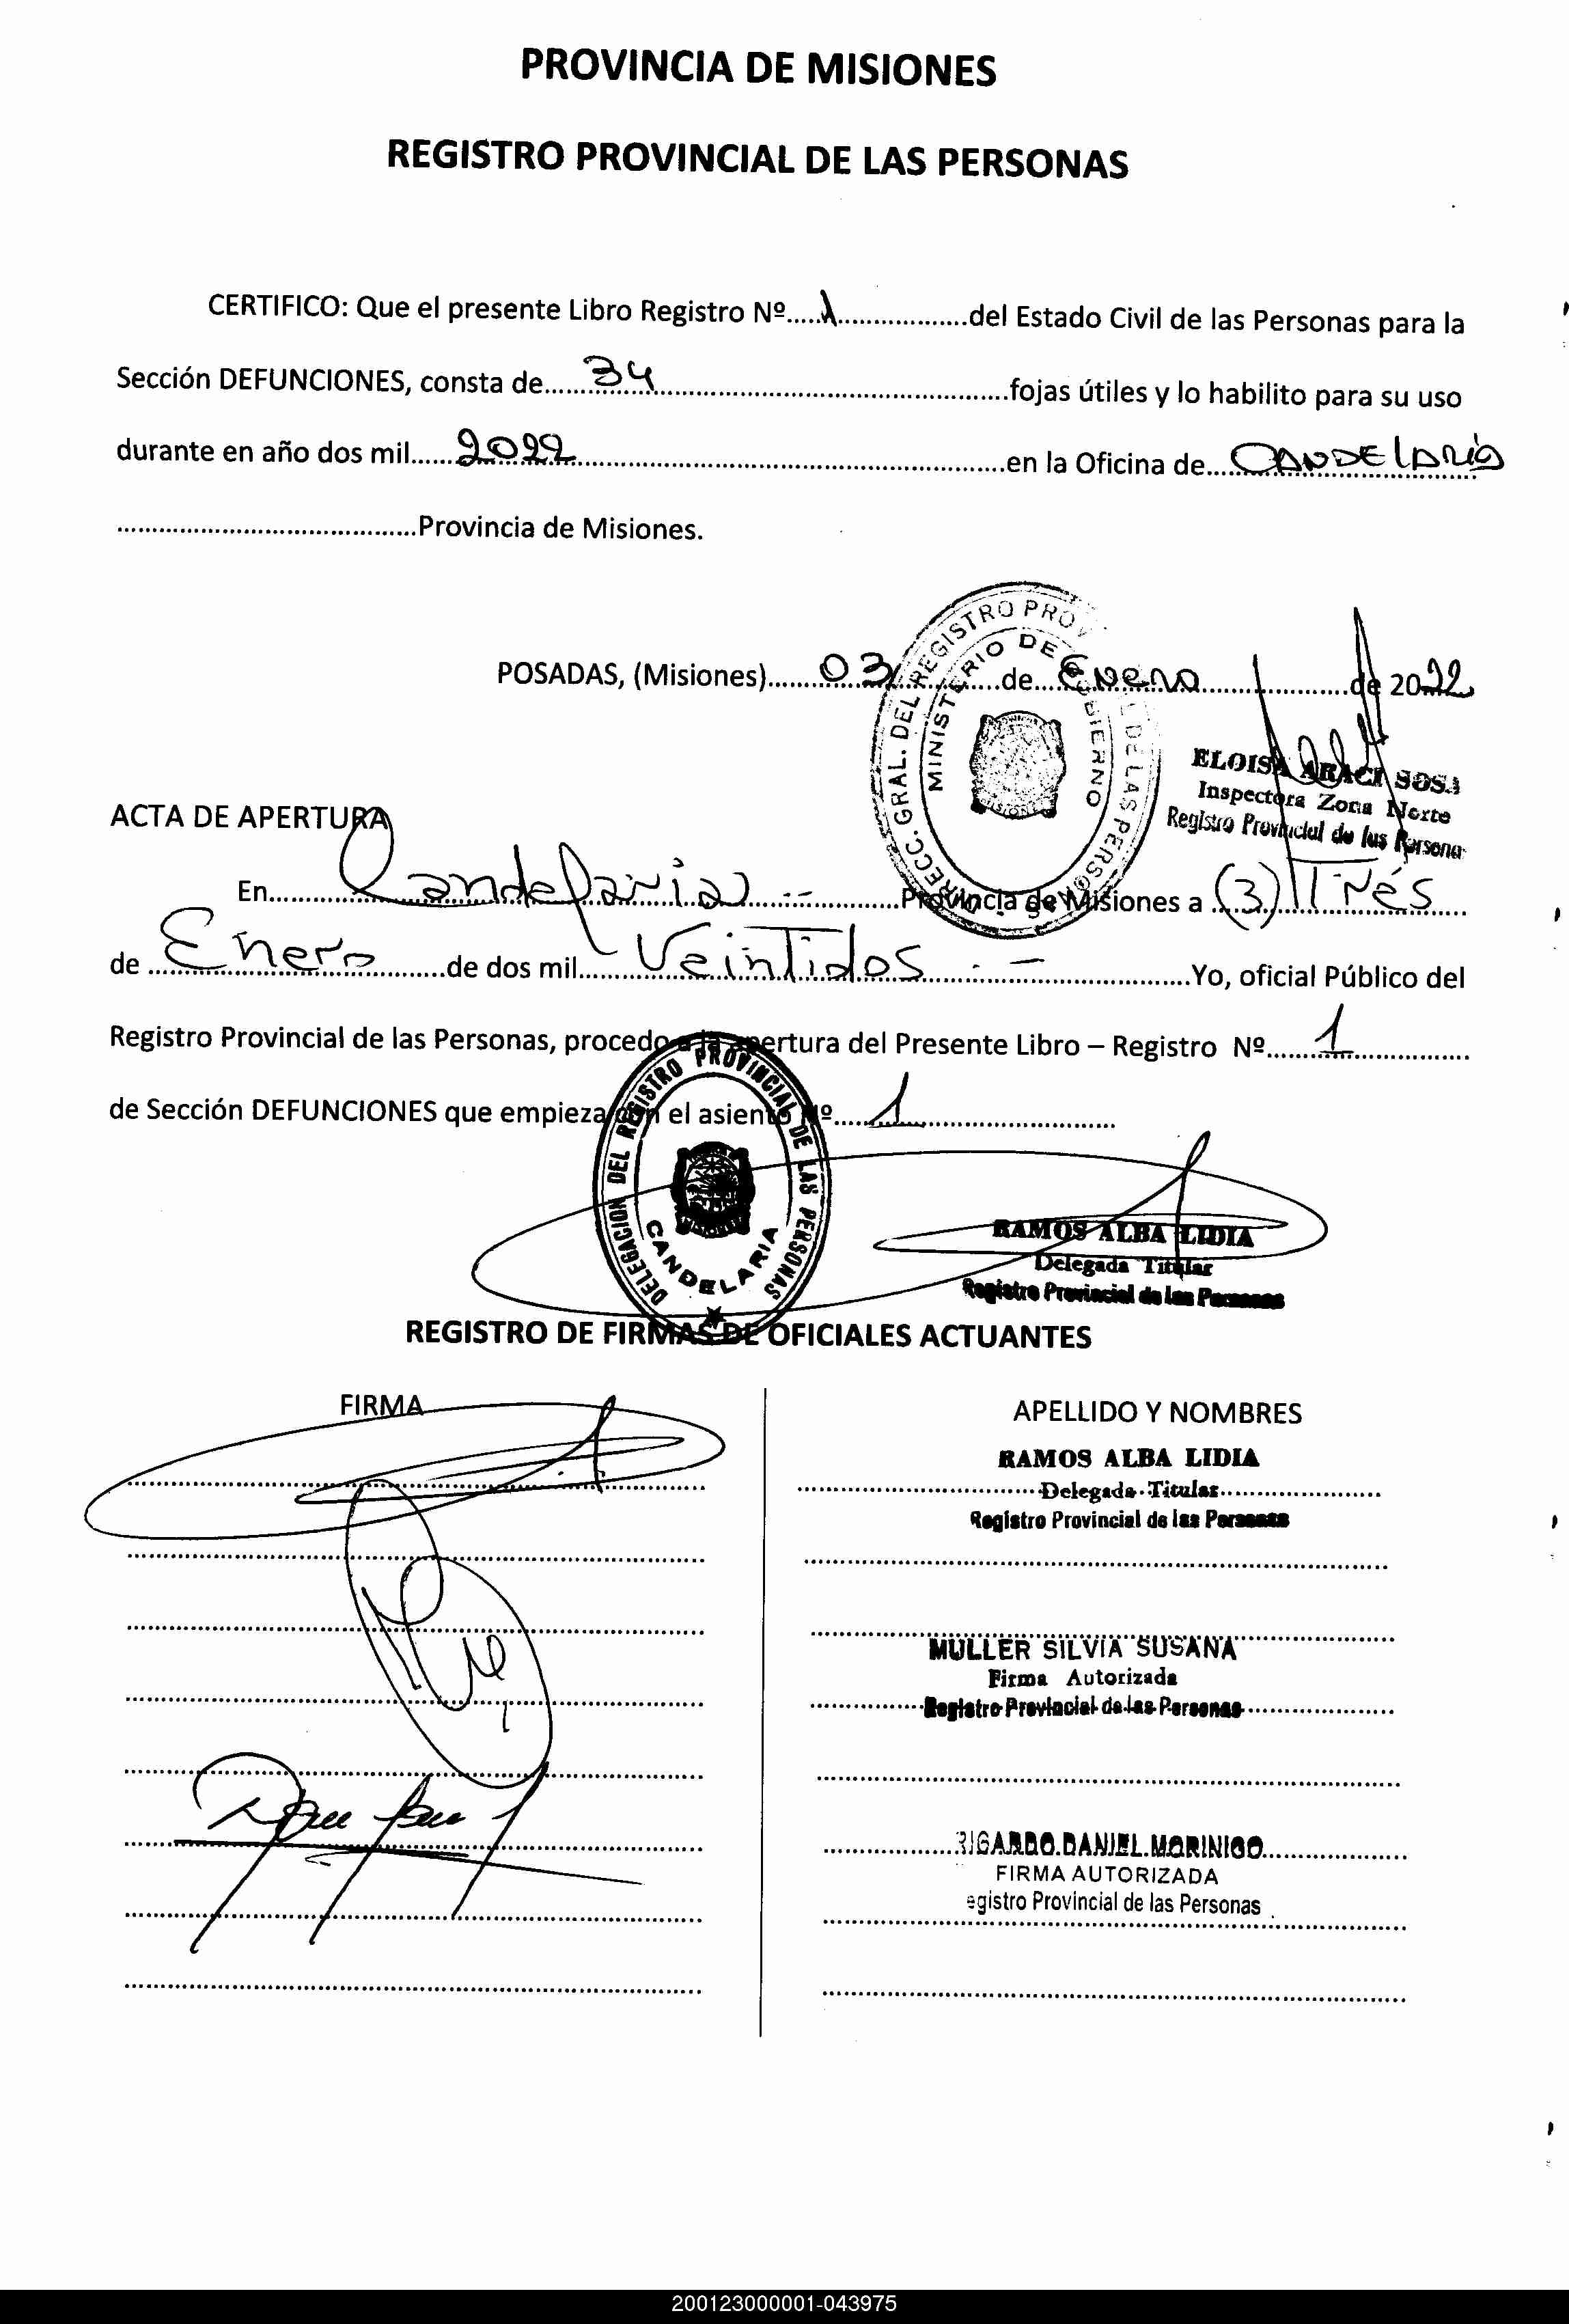 PROVINCIA DE MISIONES
REGISTRO PROVINCIAL DE LAS PERSONAS
CERTIFICO: Que el presente Libro Registro Nº.....1..................del Estado Civil de las Personas para la
Sección DEFUNCIONES, consta de......34..................................................fojas útiles y lo habilito para su uso
durante en año dos mil......2022............................................................en la Oficina de...CANDELARIA
..........................................Provincia de Misiones.
DIRECC. GRAL. DEL REGISTRO PROV DE LAS PERSONAS
MINISTERIO DE GOBIERNO
POSADAS, (Misiones).......03.............de....Enero.....................de 2022
ELOISA ARACI SOSA
Inspectora Zona Norte
Registro Provincial de las Personas
ACTA DE APERTURA
En...............Candelaria.-................Provincia de Misiones a ..(3) Trés......
de ....Enero..............de dos mil......Veintidos.-..............................Yo, oficial Público del
Registro Provincial de las Personas, procedo a la apertura del Presente Libro – Registro Nº.......1................
de Sección DEFUNCIONES que empieza con el asiento Nº.....1...........................
DELEGACION DEL REGISTRO PROVINCIAL DE LAS PERSONAS
CANDELARIA
RAMOS ALBA LIDIA
Delegada Titular
Registro Provincial de las Personas
REGISTRO DE FIRMAS DE OFICIALES ACTUANTES
FIRMA
APELLIDO Y NOMBRES
RAMOS ALBA LIDIA
Delegada Titular
Registro Provincial de las Personas
MULLER SILVIA SUSANA
Firma Autorizada
Registro Provincial de las Personas
RIGARDO DANIEL MORINIGO
FIRMA AUTORIZADA
egistro Provincial de las Personas
200123000001-043975